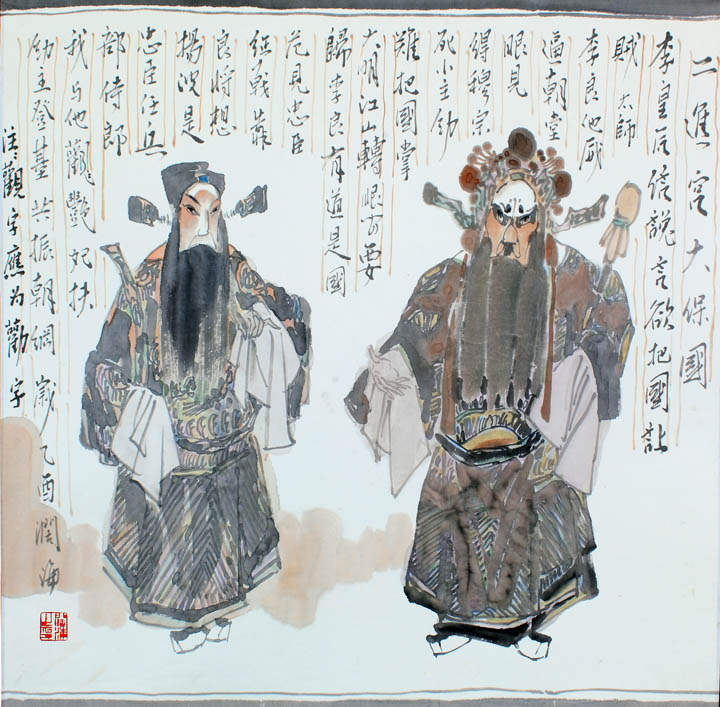 二進宮大保國
李皇后信説言欲把國让
賊太師
李良他威
逼朝堂
眼見
得穆宗
死小主幼
誰把國掌
大明江山轉眼要
歸李良有道是國
危見忠臣
經戰靠
良將想
揚波是
忠臣任兵
部侍郎
我与他觀艷妃扶
幼主登基共振朝綱 歲乙酉 潤海
注:觀字應为勸字